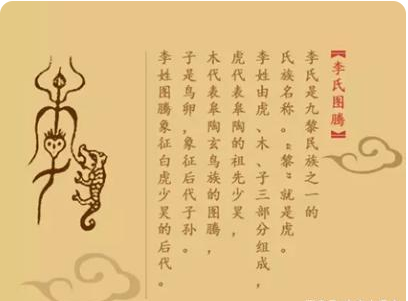 【李氏图腾】
李氏是九黎民族之一的
氏族名称。“黎”就是虎。
李姓由虎、木、子三部分组成，
虎代表皋陶的祖先少昊，
木代表皋陶玄鸟族的图腾，
子是鸟卵，象征后代子孙。
李姓图腾象征白虎少昊的后代。